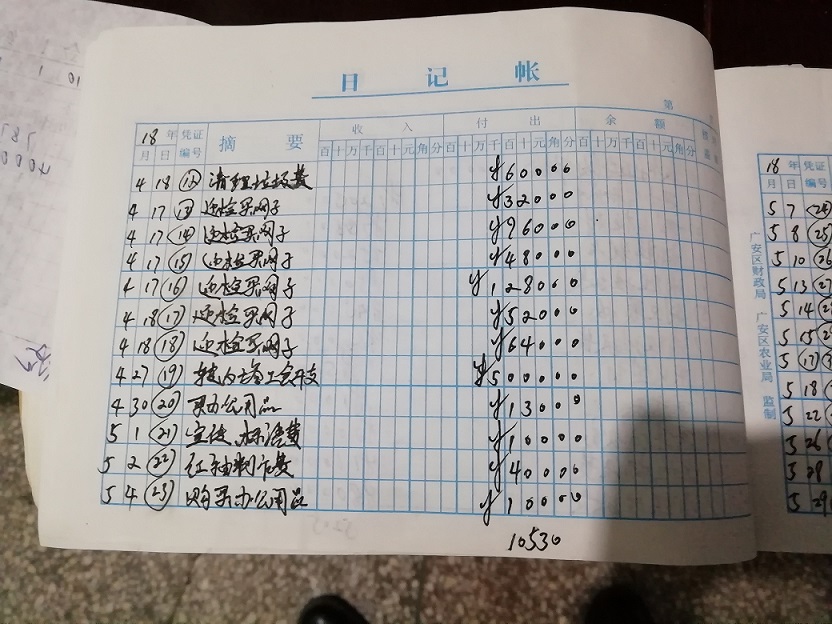 日 记 帐
第
18 年 凭证 摘 要 收 入 付 出 余 额
月 日 编号 百 十 万 千 百 十 元 角 分 百 十 万 千 百 十 元 角 分 百 十 万 千 百 十 元 角 分
4 18 (12) 清理垃圾费 ¥60000
4 17 (13) 迎检买网子 ¥32000
4 17 (14) 迎检买网子 ¥96000
4 17 (15) 迎检买网子 ¥48000
4 17 (16) 迎检买网子 ¥128000
4 18 (17) 迎检买网子 ¥52000
4 18 (18) 迎检买网子 ¥64000
4 27 (19) ¥500000
4 30 (20) 买办公用品 ¥13000
5 1 (21) 宣传、标语费 ¥10000
5 2 (22) 红油制作费 ¥40000
5 4 (23) 购买办公用品 ¥10000
10530
广安区财政局 广安区农业局 监制
18 年 凭证
月 日 编号
5 7 (24)
5 8 (25)
5 10 (26
5 13 (27
5 14
5 15
5 17
5 18
5 22
5 26
5 28
5 29